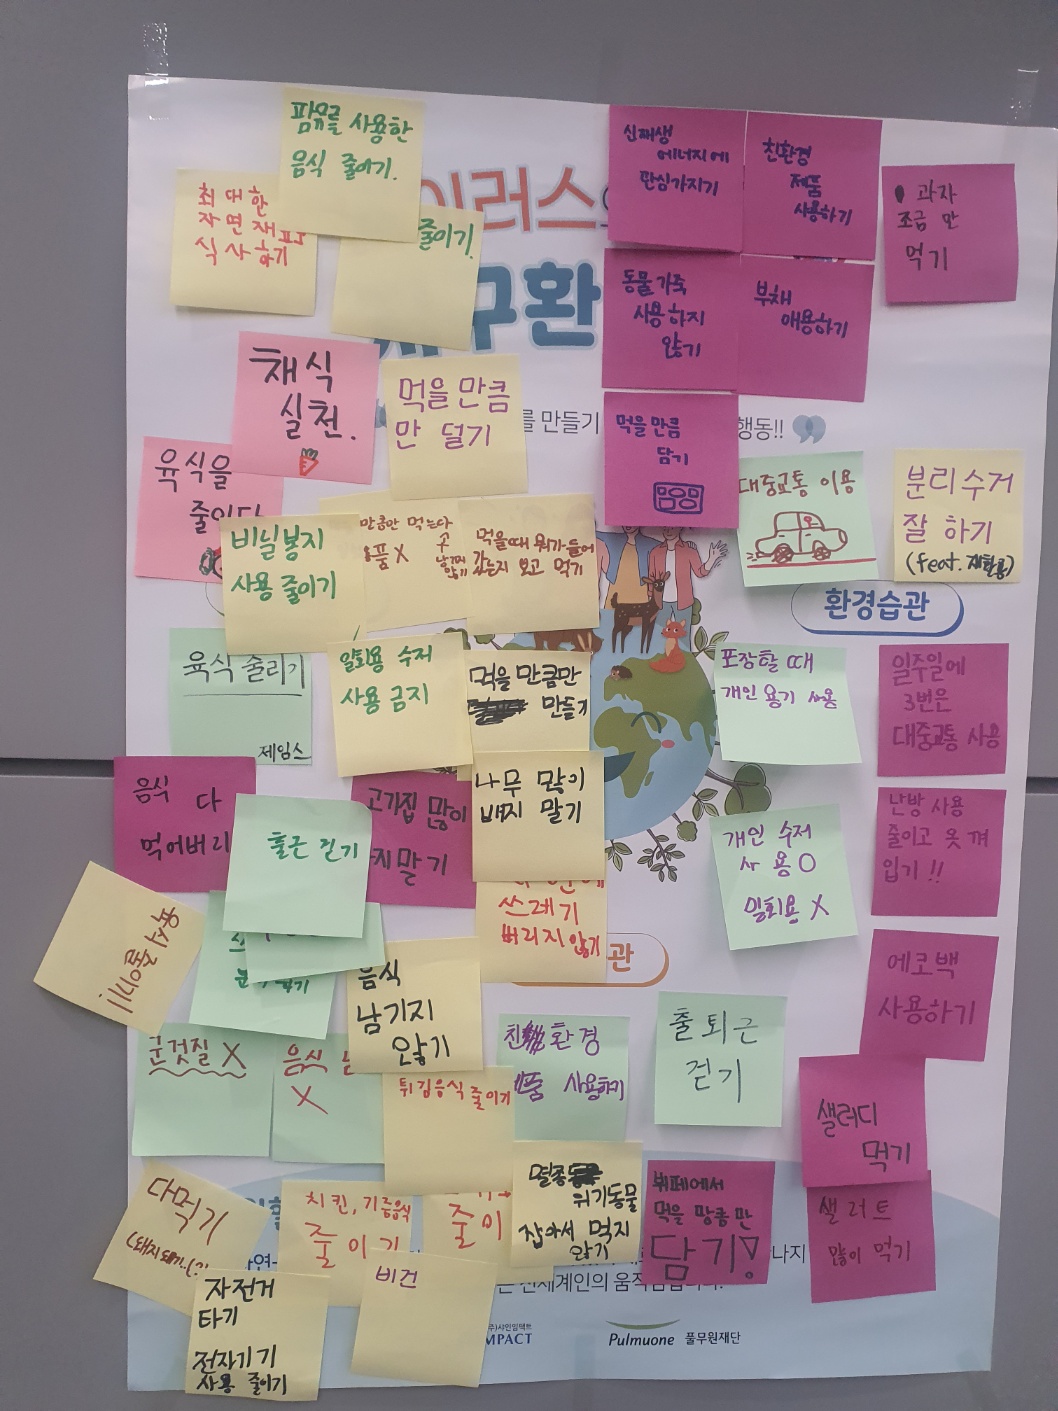 팜유를 사용한
음식 줄이기.
최대한
자연재료
식사하기
줄이기.
이러스
구환
신재생
에너지에
관심가지기
친환경
제품
사용하기
과자
조금 만
먹기
동물 가죽
사용하지
않기
부채
애용하기
채식
실천.
먹을 만큼
만 덜기
를 만들기
행동!!
먹을 만큼
담기
육식을
줄이다
비닐봉지
사용 줄이기
만큼만 먹는다
품X
먹을때 뭐가 들어
갔는지 보고 먹기
대중교통 이용
분리수거
잘 하기
(feat. 재활용)
환경습관
육식 줄리기
제임스
일회용 수저
사용 금지
먹을 만큼만
만들기
포장할 때
개인 용기 사용
일주일에
3번은
대중교통 사용
음식 다
먹어버리
출근 걷기
고기집 많이
지말기
나무 많이
배지 말기
개인 수저
사용O
일회용 X
난방 사용
줄이고 옷 껴
입기!!
육식 줄이기!
쓰레기
버리지 않기
관
에코백
사용하기
음식
남기지
않기
군것질 X
음식
X
튀김음식 줄이기
친환경
사용하기
출퇴근
걷기
샐러디
먹기
다먹기
치킨, 기름음식
줄이기
줄이
멸종
위기동물
잡아서 먹지
않기
뷔페에서
먹을 망큼만
담기!
샐러트
많이 먹기
나지
는 전세계인의 움직임입니다.
비건
자전거
타기
전자기기
사용 줄이기
(주)샤인임팩트
MPACT
Pulmuone 풀무원재단